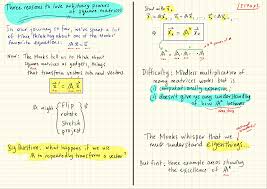 Three reasons to love arbitrary powers
of square matrices
In our journey so far, we've spent a lot
of time thinking about one of the Monks'
favorite equations:
A x = b
Now: The Monks tell us to think about
square matrices as gadgets, things
that transform vectors into new vectors
A might
Flip
rotate
Stretch
project
Big Question: What happens if we use
A to repeatedly transform a vector?
Start with
Difficulty: Mindless multiplication of
many matrices works but is
computationally expensive,
doesn't give us any understanding
of how A behaves
The Monks whisper that we
must understand eigenthings.
But first: three example areas showing
the excellence of